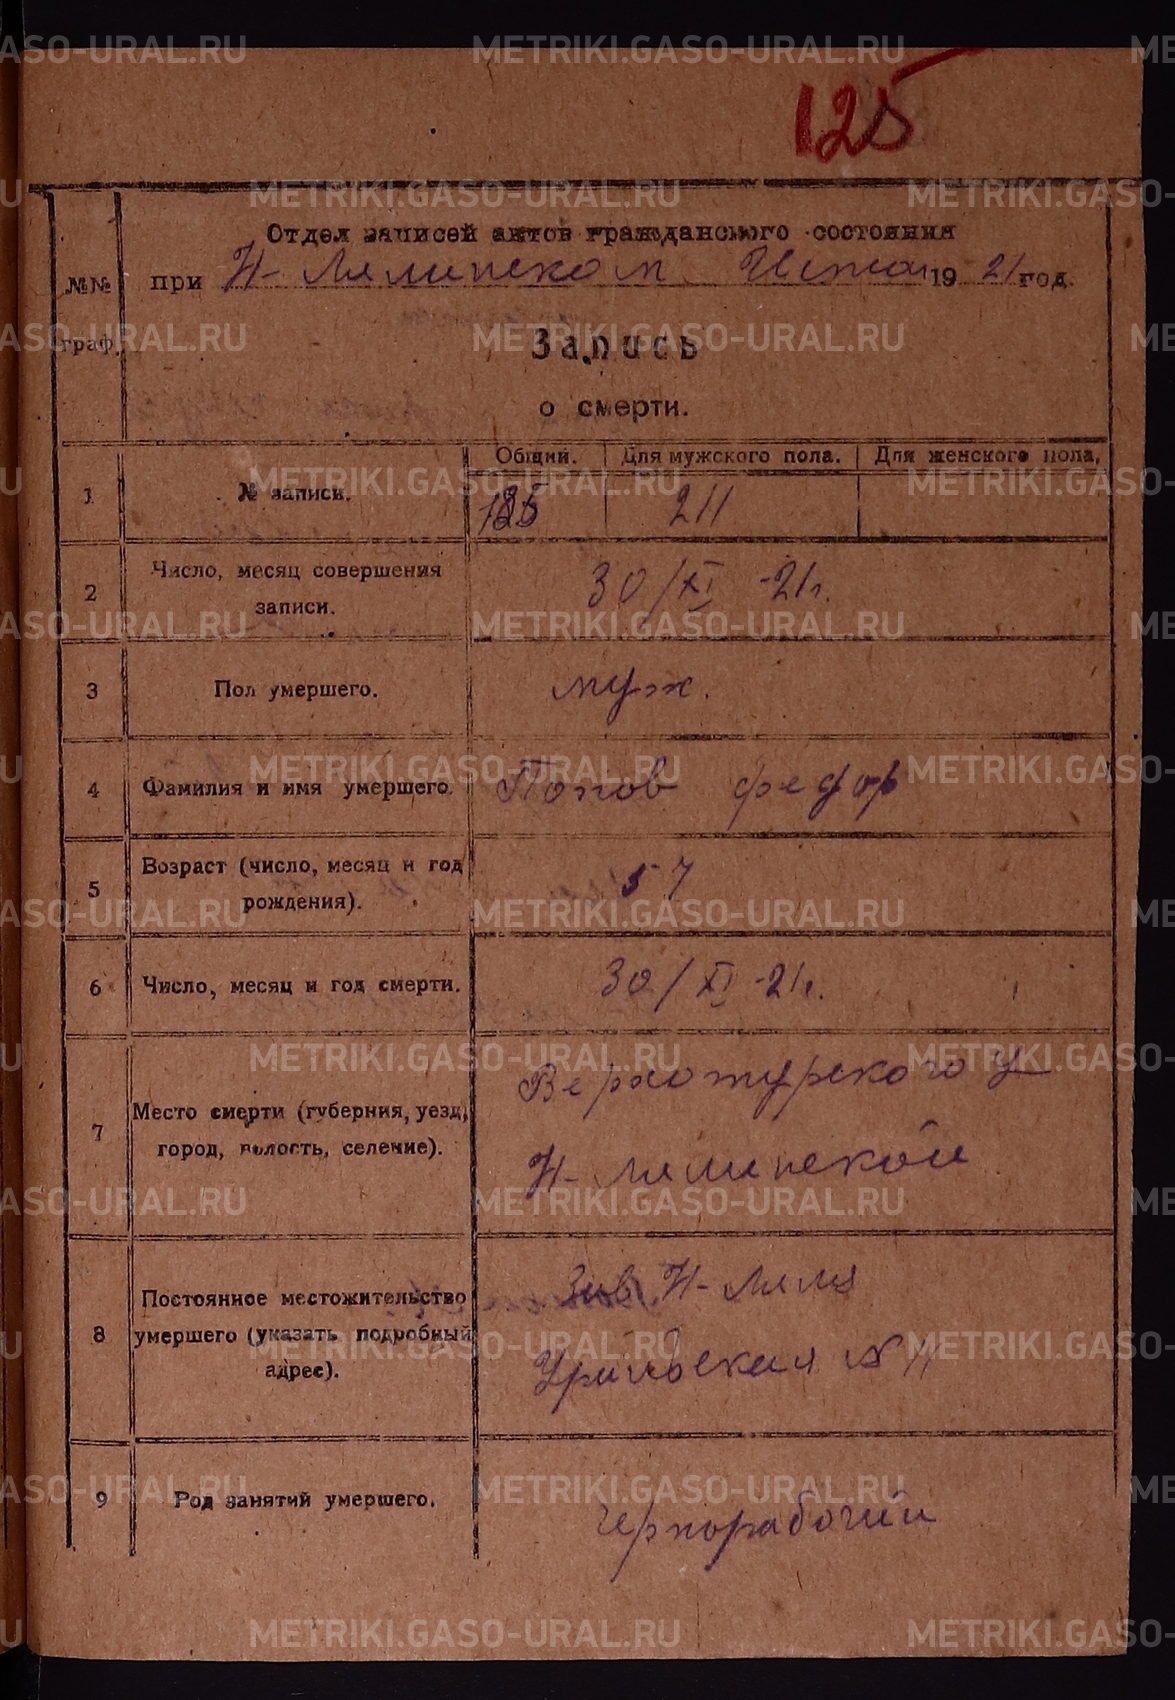 125
Отдел записей актов гражданского состояния
№№ граф.
при Н-Лялинском 1921 год.
Запись
о смерти.
Общий. Для мужского пола. Для женского пола,
1 № записи. 125 211
2 Число, месяц совершения записи. 30/XI -21г.
3 Пол умершего. муж.
4 Фамилия и имя умершего. Попов Федор
5 Возраст (число, месяц и год рождения). 57
6 Число, месяц и год смерти. 30/XI -21г.
7 Место смерти (губерния, уезд, город, волость, селение). Верхотурского у
Н-Лялинской
8 Постоянное местожительство умершего (указать подробный адрес). Н-Ляля
№ 11
9 Род занятий умершего. Чернорабочий
METRIKI.GASO-URAL.RU